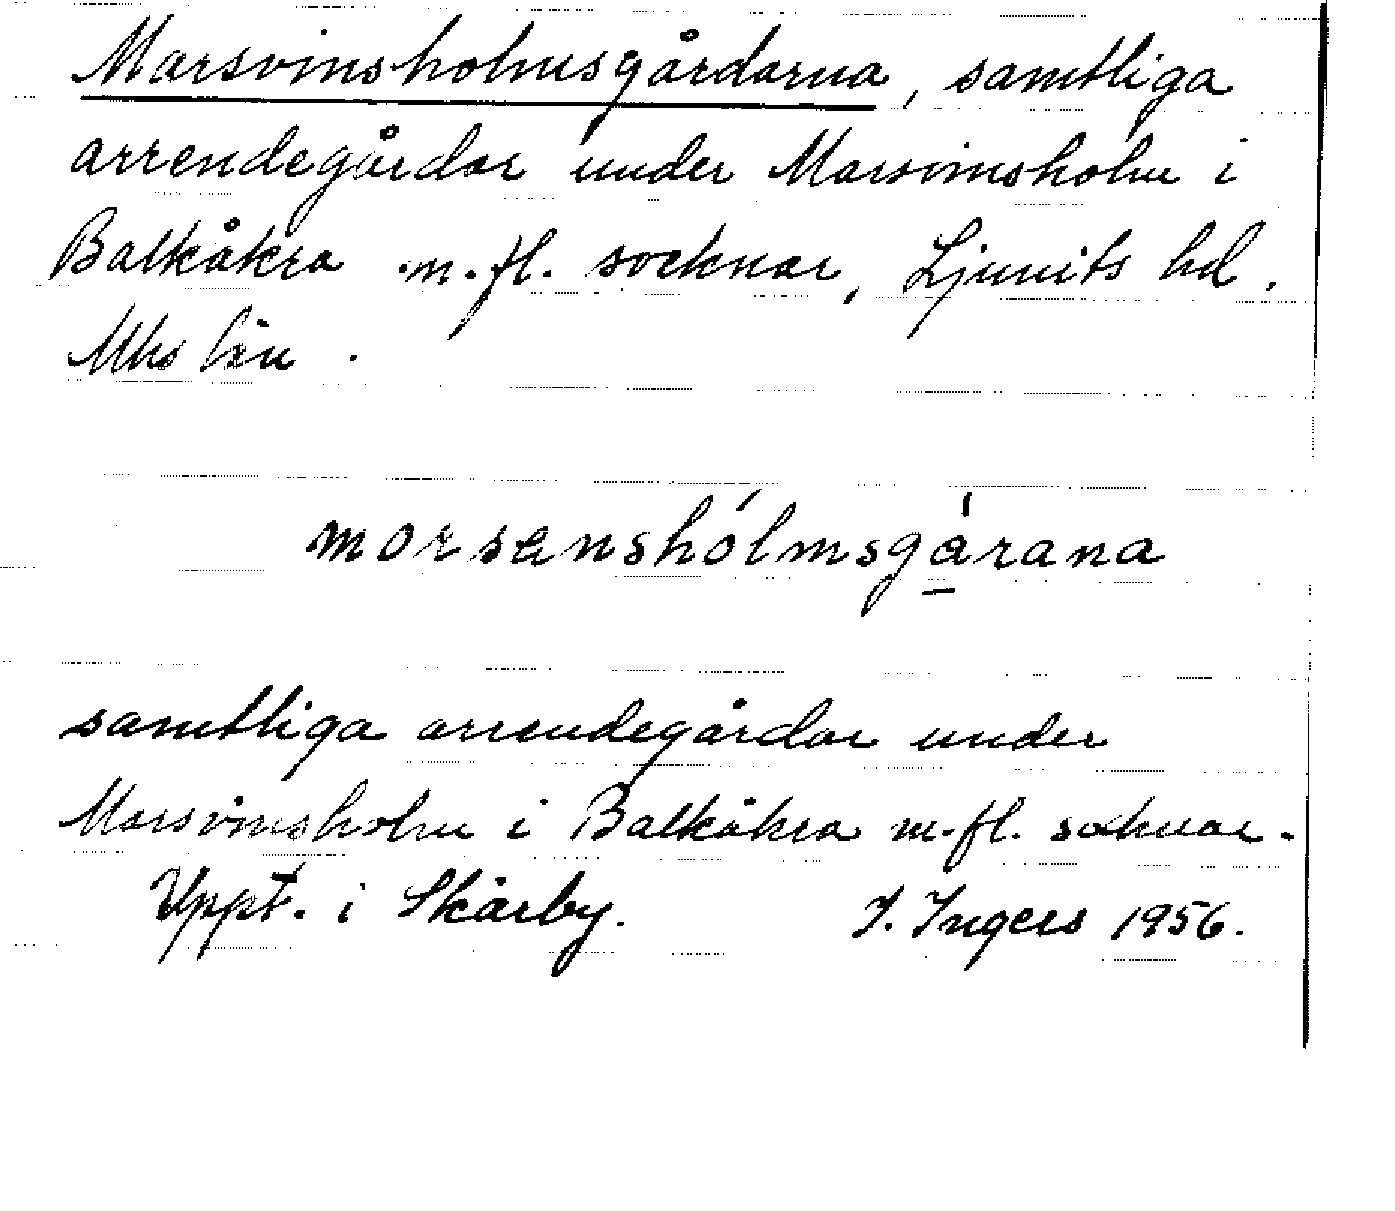 Marsvinsholmsgårdarna, samtliga
arrendegårdar under Marsvinsholm i
Balkåkra m.fl. socknar, Ljunits hd.
Mhs län.
morsenshólmsgárana
samtliga arrendegårdar under
Marsvinsholm i Balkåkra m.fl. socknar.
Uppt. i Skårby. I. Ingers 1956.